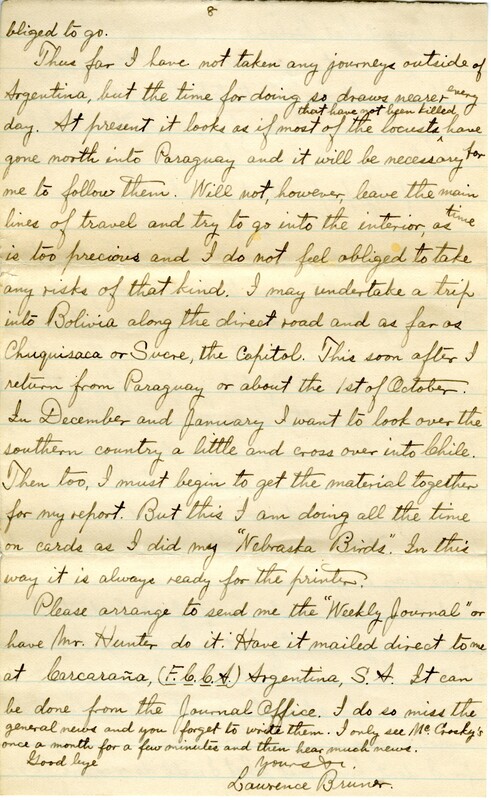 8
bliged to go.
Thus far I have not taken any journeys outside of
Argentina, but the time for doing so draws nearer every
day. At present it looks as if most of the locusts that have not been killed have
gone north into Paraguay and it will be necessary for
me to follow them. Will not, however, leave the main
lines of travel and try to go into the interior, as time
is too precious and I do not feel obliged to take
any risks of that kind. I may undertake a trip
into Bolivia along the direct road and as far as
Chuquisaca or Sucre, the Capitol. This soon after I
return from Paraguay or about the 1st of October.
In December and January I want to look over the
southern country a little and cross over into Chile.
Then too, I must begin to get the material together
for my report. But this I am doing all the time
on cards as I did my "Nebraska Birds". In this
way it is always ready for the printer.
Please arrange to send me the "Weekly Journal" or
have Mr. Hunter do it. Have it mailed direct to me
at Carcaraña, (F.C.C.A.) Argentina, S. A. It can
be done from the Journal Office. I do so miss the
general news and you forget to write them. I only see Mc Crosky's
once a month for a few minutes and then hear much news.
Good bye
Yours &c.
Laurence Bruner.